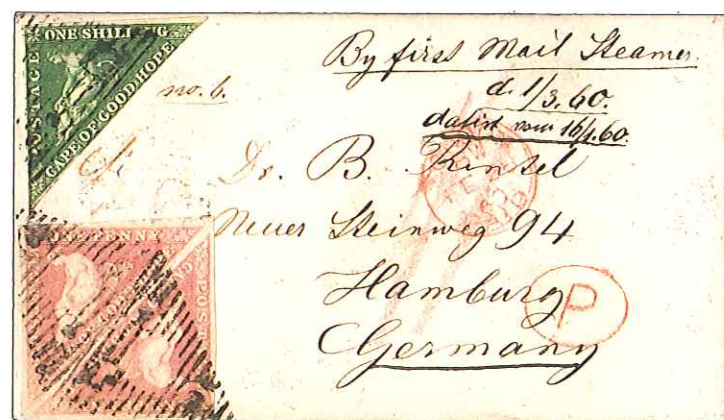 ONE SHILLING
POSTAGE
CAPE OF GOOD HOPE
By first Mail Steamer.
d. 1/3.60.
datirt vom 16/1.60.
no. 6.
Dr. B. Kinsel
Neuer Steinweg 94
Hamburg
Germany
P
ONE PENNY
POST